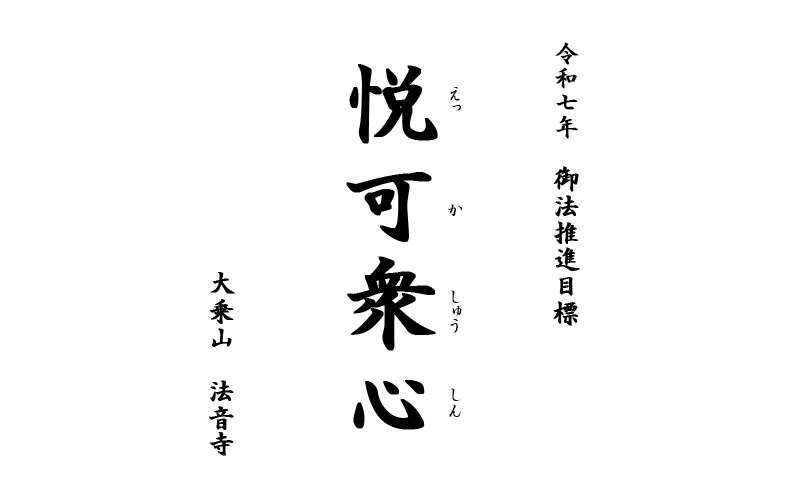 令和七年　御法推進目標
悦可衆心
えっ　か　しゅう　しん
大乗山　法音寺